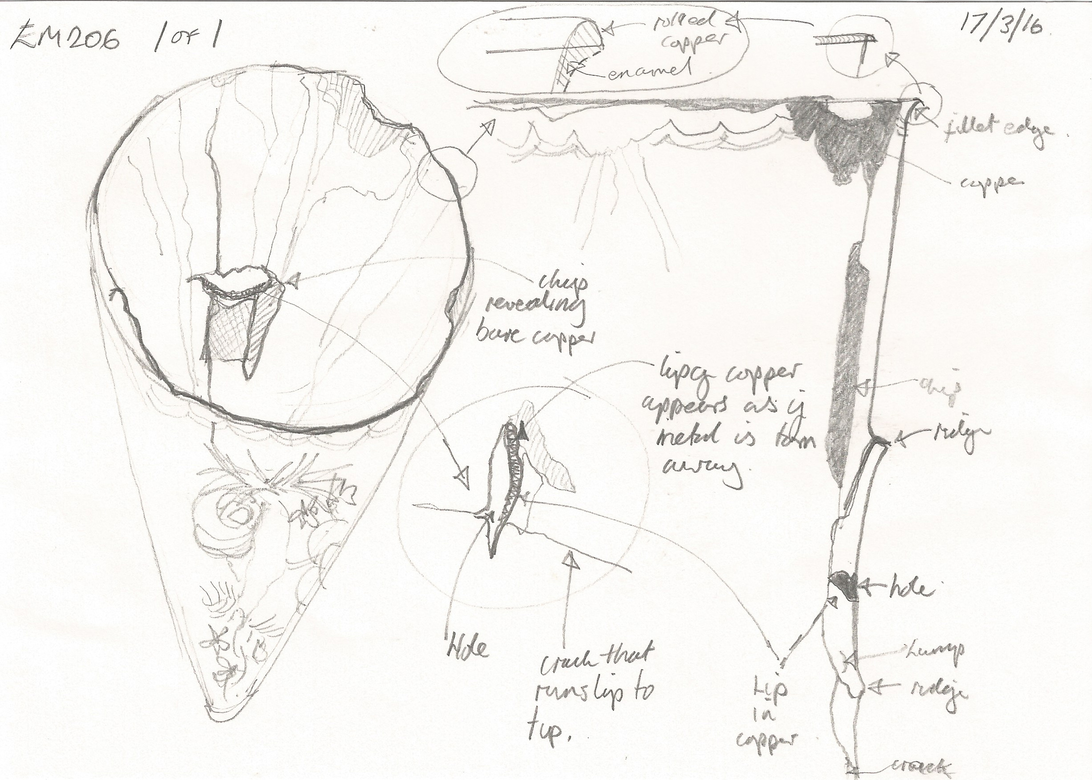 EM206 1 OF 1
17/3/16
rolled
copper
enamel
fillet edge.
copper
chip
revealing
bare copper
lip of copper
appears as if
metal is torn
away.
chip
ridge
hole
Hole
crack that
runs lip to
tip.
Lip
in
copper
lump
ridge
crack